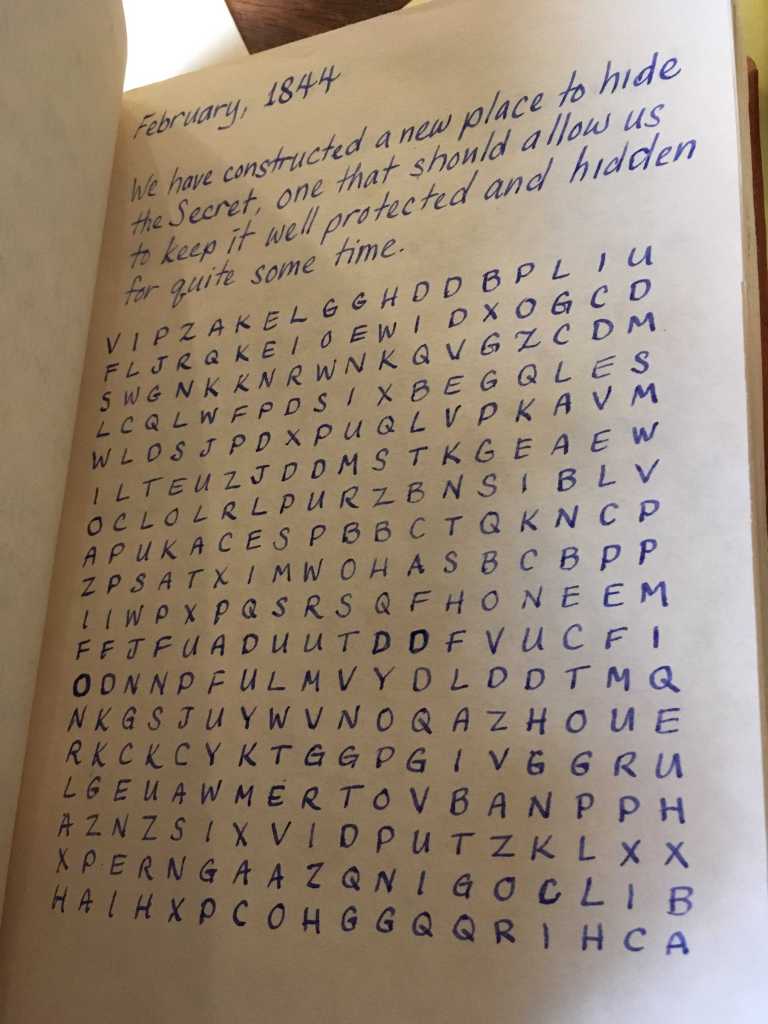 February, 1844
We have constructed a new place to hide
the Secret, one that should allow us
to keep it well protected and hidden
for quite some time.
V I P Z A K E L G G H D D B P L I U
F L J R Q K E I O E W I D X O G C D
S W G N K K N R W N K Q V G Z C D M
L C Q L W F P D S I X B E G Q L E S
W L D S J P D X P U Q L V P K A V M
I L T E U Z J D D M S T K G E A E W
O C L O L R L P U R Z B N S I B L V
A P U K A C E S P B B C T Q K N C P
Z P S A T X I M W O H A S B C B P P
I I W P X P Q S R S Q F H O N E E M
F F J F U A D U U T D D F V U C F I
O D N N P F U L M V Y D L D D T M Q
N K G S J U Y W V N O Q A Z H O U E
R K C K C Y K T G G P G I V G G R U
L G E U A W M E R T O V B A N P P H
A Z N Z S I X V I D P U T Z K L X X
X P E R N G A A Z Q N I G O C L I B
H A I H X P C O H G G Q Q R I H C A